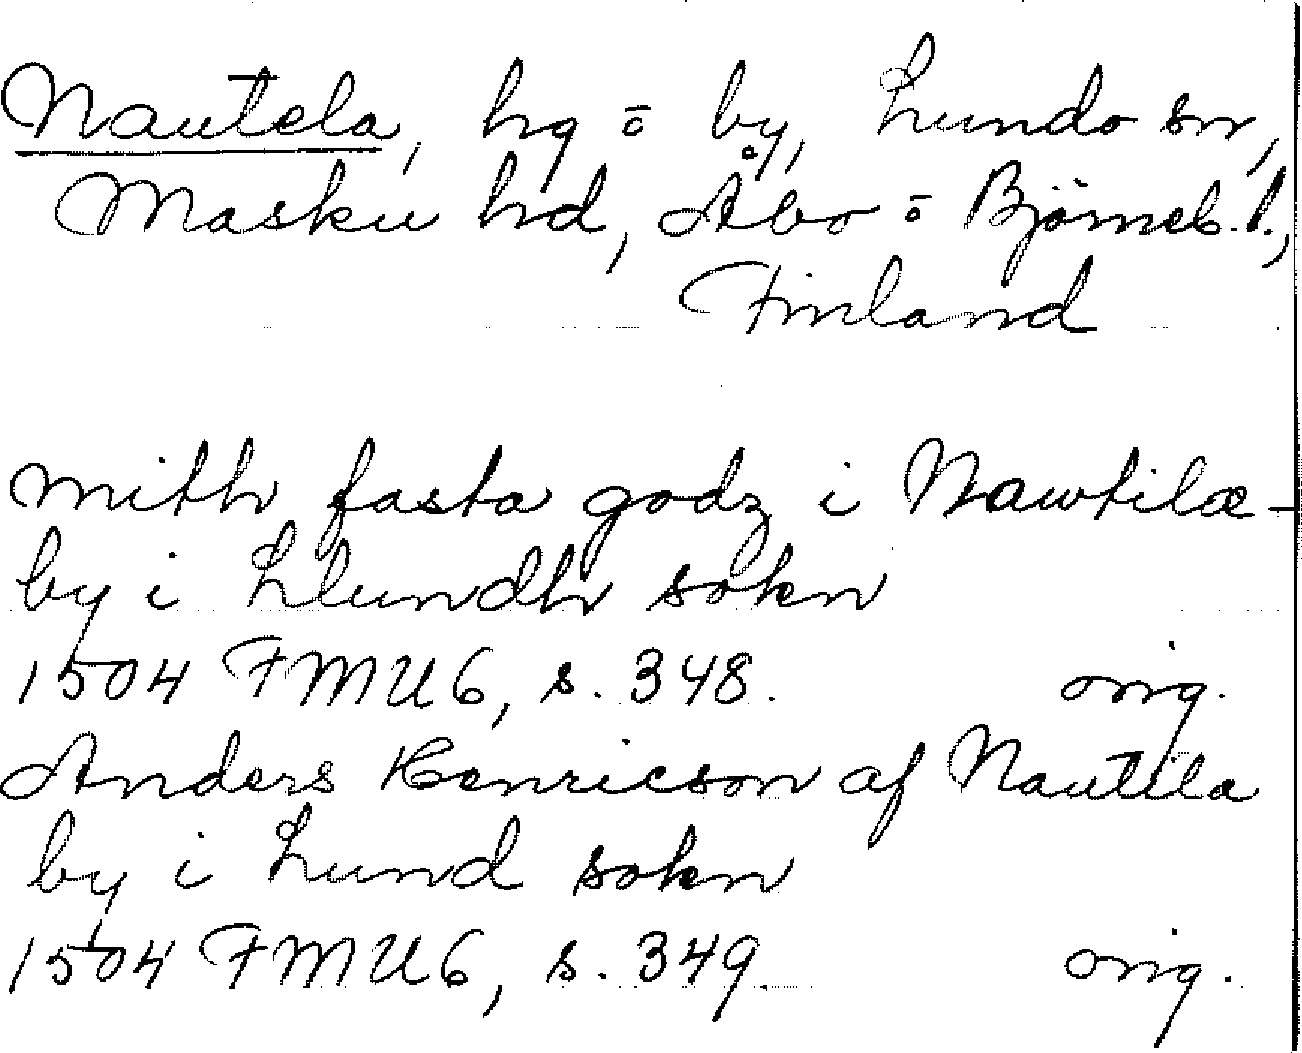 Nautela, hg = by, Lundo sn,
Masku hd, Åbo = Björneb. l.,
Finland
mith fasta godz i Nawtilæ-
by i Llundh sokn
1504 FMU6, s. 348. orig.
Anders Henricson af Nautila
by i Lund sokn
1504 FMU6, s. 349 orig.